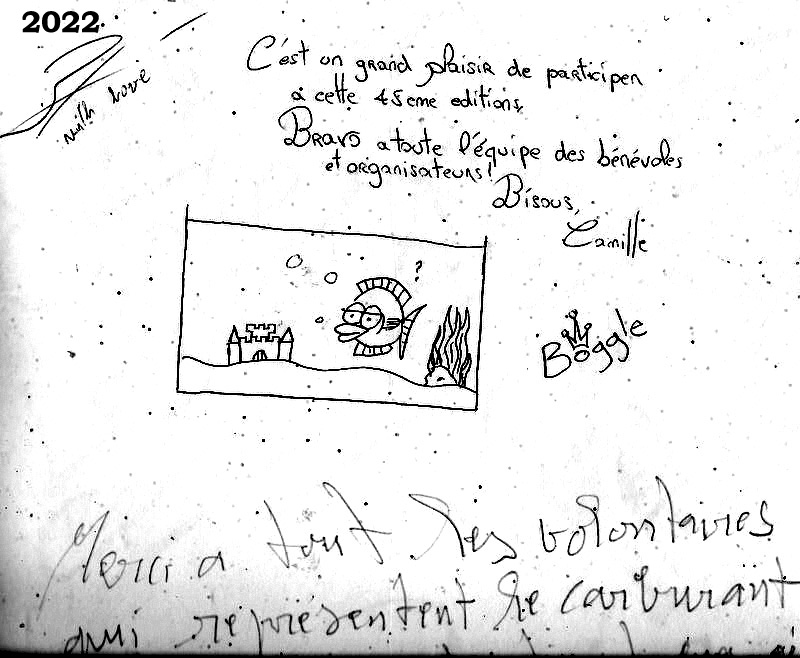 2022
with love
C'est un grand plaisir de participer
à cette 45eme editions
Bravo a toute l'équipe des bénévoles
et organisateurs!
Bisous,
Camille
?
Boggle
Merci a tout les volontaires
qui représentent le carburant